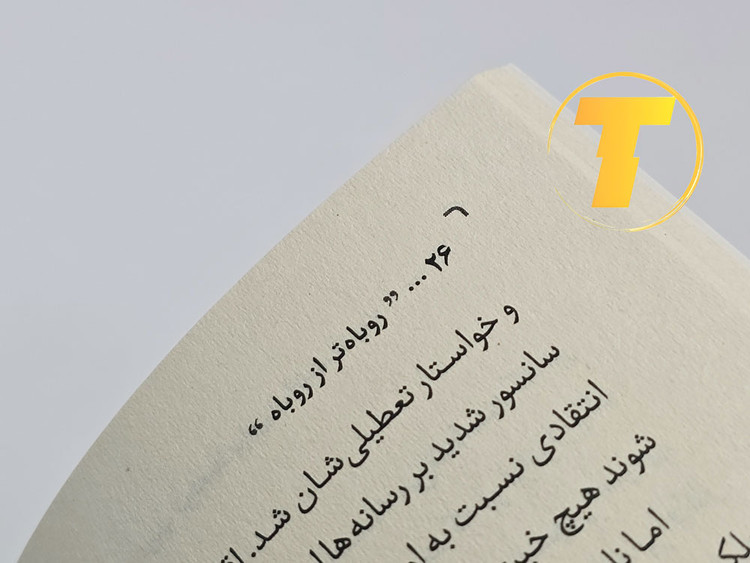 ۲۶ ... « روباه‌تر از روباه »
و خواستار تعطیلی شان شد.
سانسور شدید بر رسانه‌ها
انتقادی نسبت به
شوند هیچ
اما
T